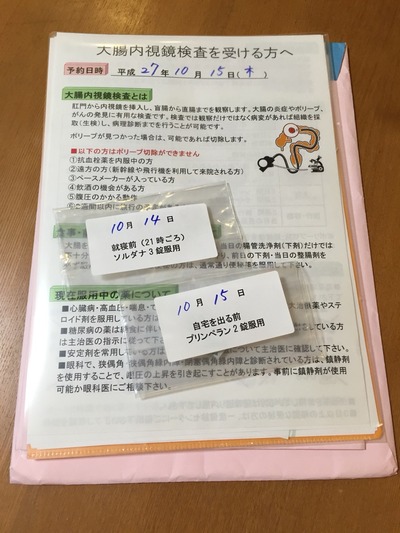 大腸内視鏡検査を受ける方へ
予約日時 平成 27年 10月 15日(木)
大腸内視鏡検査とは
肛門から内視鏡を挿入し、盲腸から直腸までを観察します。大腸の炎症やポリープ、
がんの発見に有用な検査です。検査では観察だけではなく病変があれば組織を採
取(生検)し、病理診断までを行うことが可能です。
ポリープが見つかった場合は、可能であれば切除します。
■以下の方はポリープ切除ができません
①抗血栓薬を内服中の方
②遠方の方(新幹線や飛行機を利用して来院される方)
③ペースメーカーが入っている方
④飲酒の機会がある方
⑤腹圧のかかる動作
10月 14日
就寝前(21時ごろ)
ソルダナ3錠服用
当日の腸管洗浄剤(下剤)だけでは
前日の下剤・当日の整腸剤を
現在服用中の薬について
■心臓病・高血圧・喘息・
ロイド剤を服用している方は
■糖尿病の薬は終
は主治医の指示に従って下
■安定剤を常用してい
10月 15日
自宅を出る前
プリンペラン2錠服用
ついて主治医に確認して下さい。
■眼科で、狭隅角
と診断されている方は、鎮静剤
を使用することで、眼圧の上昇を引き起こすことがあります。事前に鎮静剤が使用
可能か眼科医にご相談下さい。